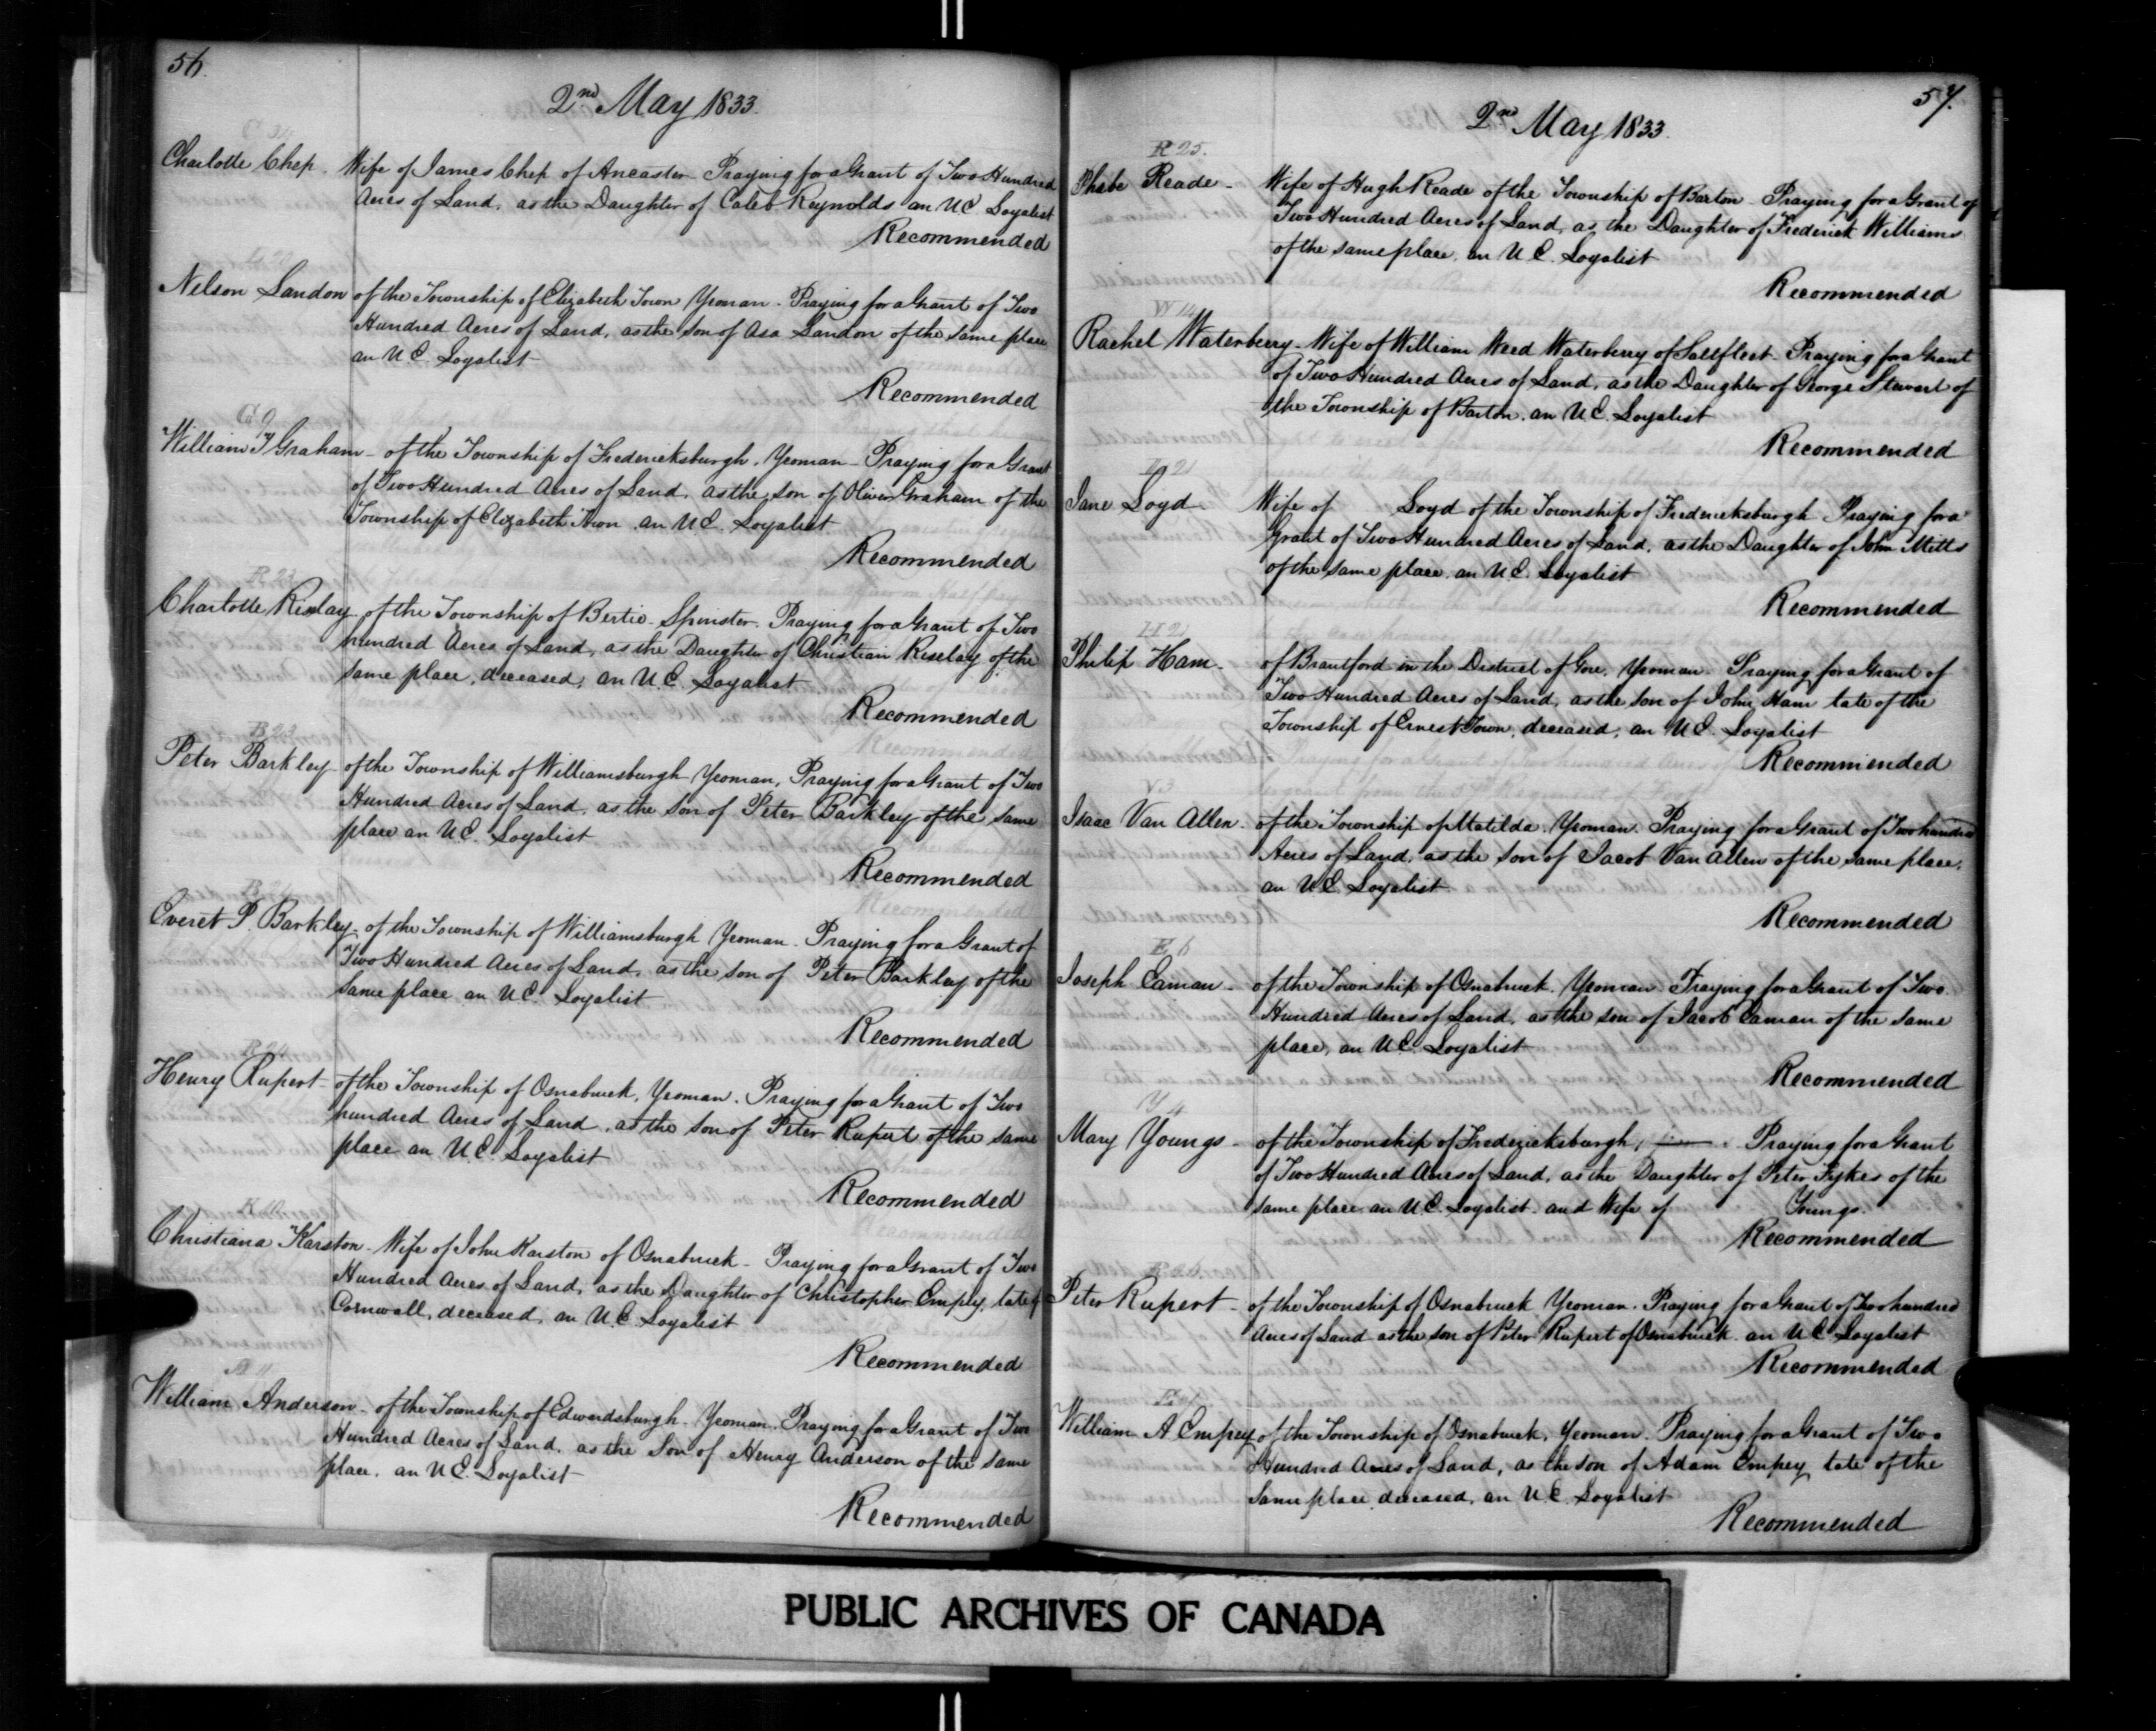 56.
2nd May 1833.
Charlotte Chep. Wife of James Chep of Ancaster Praying for a Grant of Two Hundred
Acres of Land, as the Daughter of Caleb Reynolds an U.E. Loyalist
Recommended
Nelson Landon of the Township of Elizabeth Town Yeoman. Praying for a Grant of Two
Hundred Acres of Land, as the Son of Asa Landon of the same place
an U.E. Loyalist
Recommended
G 9
William T Graham - of the Township of Fredericksburgh. Yeoman - Praying for a Grant
of Two Hundred Acres of Land, as the son of Oliver Graham of the
Township of Elizabeth Town an U.E. Loyalist.
Recommended
Charlotte Riselay - of the Township of Bertie - Spinster. Praying for a Grant of Two
hundred Acres of Land, as the Daughter of Christian Riselay of the
same place, deceased, an U.E. Loyalist
Recommended
B 23
Peter Barkley of the Township of Williamsburgh Yeoman, Praying for a Grant of Two
Hundred Acres of Land, as the Son of Peter Barkley of the same
place an U.E. Loyalist
Recommended
B 24
Everet P. Barkley - of the Township of Williamsburgh Yeoman. Praying for a Grant of
Two Hundred Acres of Land, as the son of Peter Barkley of the
same place an U.E. Loyalist
Recommended
R 24
Henry Rupert - of the Township of Osnabruck, Yeoman. Praying for a Grant of Two
hundred Acres of Land, as the Son of Peter Rupert of the same
place an U.E. Loyalist
Recommended
K 10
Christiana Karston - Wife of John Karston of Osnabruck - Praying for a Grant of Two
Hundred Acres of Land, as the Daughter of Christopher Empey, late of
Cornwall, deceased, an U.E. Loyalist
Recommended
A 4
William Anderson - of the Township of Edwardsburgh. Yeoman. Praying for a Grant of Two
Hundred Acres of Land, as the Son of Henry Anderson of the same
place, an U.E. Loyalist
Recommended
57.
2nd May 1833.
R 25.
Phebe Reade - Wife of Hugh Reade of the Township of Barton Praying for a Grant of
Two Hundred Acres of Land, as the Daughter of Frederick Williams
of the same place, an U.E. Loyalist
Recommended
Rachel Waterberry - Wife of William Weed Waterberry of Saltfleet - Praying for a Grant
of Two Hundred Acres of Land, as the Daughter of George Stewart of
the Township of Barton, an U.E. Loyalist
Recommended
L 2
Jane Loyd. Wife of Loyd of the Township of Fredericksburgh Praying for a
Grant of Two Hundred Acres of Land, as the Daughter of John Mitts
of the same place, an U.E. Loyalist
Recommended
H 2
Philip Ham - of Brantford in the District of Gore, Yeoman. Praying for a Grant of
Two Hundred Acres of Land, as the Son of John Ham late of the
Township of Ernest Town, deceased, an U.E. Loyalist
Recommended
V 3
Isaac Van Allen - of the Township of Matilda, Yeoman. Praying for a Grant of Two hundred
Acres of Land, as the Son of Jacob Van Allen of the same place,
an U.E. Loyalist
Recommended
E 6
Joseph Eaman - of the Township of Osnabruck, Yeoman. Praying for a Grant of Two
Hundred Acres of Land, as the son of Jacob Eaman of the same
place, an U.E. Loyalist
Recommended
Y 4
Mary Youngs - of the Township of Fredericksburgh, Praying for a Grant
of Two Hundred Acres of Land, as the Daughter of Peter Fykes of the
same place an U.E. Loyalist. and Wife of Youngs.
Recommended
Peter Rupert - of the Township of Osnabruck Yeoman. Praying for a Grant of Two hundred
Acres of Land as the Son of Peter Rupert of Osnabruck. an U.E Loyalist
Recommended
William A Empey of the Township of Osnabruck, Yeoman. Praying for a Grant of Two
Hundred Acres of Land, as the son of Adam Empey late of the
same place deceased, an U.E. Loyalist
Recommended
PUBLIC ARCHIVES OF CANADA